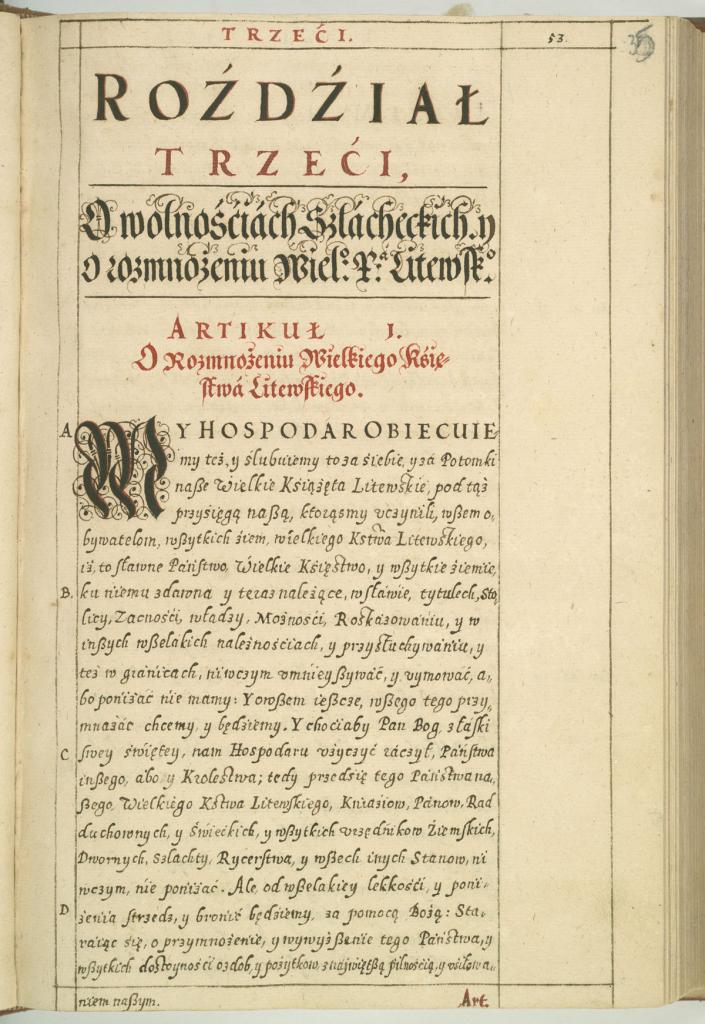 TRZEĆI. 53. 35
ROŹDŹIAŁ
TRZEĆI,
O wolnośćiách Szlácheckich, y
o rozmnożeniu Wielº. Xª. Litewskº.
ARTIKUŁ 1.
O Rozmnożeniu Wielkiego Księ-
stwá Litewskiego.
A MY HOSPODAR OBIECUIE
my też, y ślubuiemy to za siebie, y zá Potomki
naße Wielkie Książęta Litewskie, pod tąż
przysięgą naßą, ktorąsmy vczynili, wßem o-
bywatelom, wßytkich źiem, wielkiego Kstwa Litewskiego,
iż, to sławne Państwo, Wielkie Księstwo, y wßytkie źiemie,
B. ku niemu zdawna y teraz należące, w sławie, tytulech, Sto
licy, Zacnośći, władzy, Możnośći, Roskazowaniu, y w
inßych wßelakich należnościach, y przysłuchywaniu, y
też w granicach, niwczym vmnieyßywáć, y vymowáć, a-
bo poniżác nie mamy: Y owßem ieszcze, wßego tego przy-
mnażác chcemy, y będźiemy. Y choćiaby Pan Bog, z łaski
C swey świętey, nam Hospodaru vżyczyć ráczył, Państwa
inßego, abo y Krolestwa; tedy przedsię tego Państwa na-
ßego, Wielkiego Kstwa Litewskiego, Kniaźiow, Pánow, Rad
duchownych, y Świeckich, y wßytkich vrzędnikow Źiemskich,
Dwornych, Szlachty, Rycerstwa, y wßech inych Stanow, ni
wczym, nie poniżác. Ale, od wßelakiey lekkośći, y poni-
D żenia strzedz, y bronić będźiemy, za pomocą Bożą: Sta-
raiąc się, o przymnożenie, y wywyżßenie tego Państwa, y
wßytkich dostoynośći ozdob, y pożytkow, z naywiętßą pilnośćią, y vśiłowa-
niem naßym. Art.